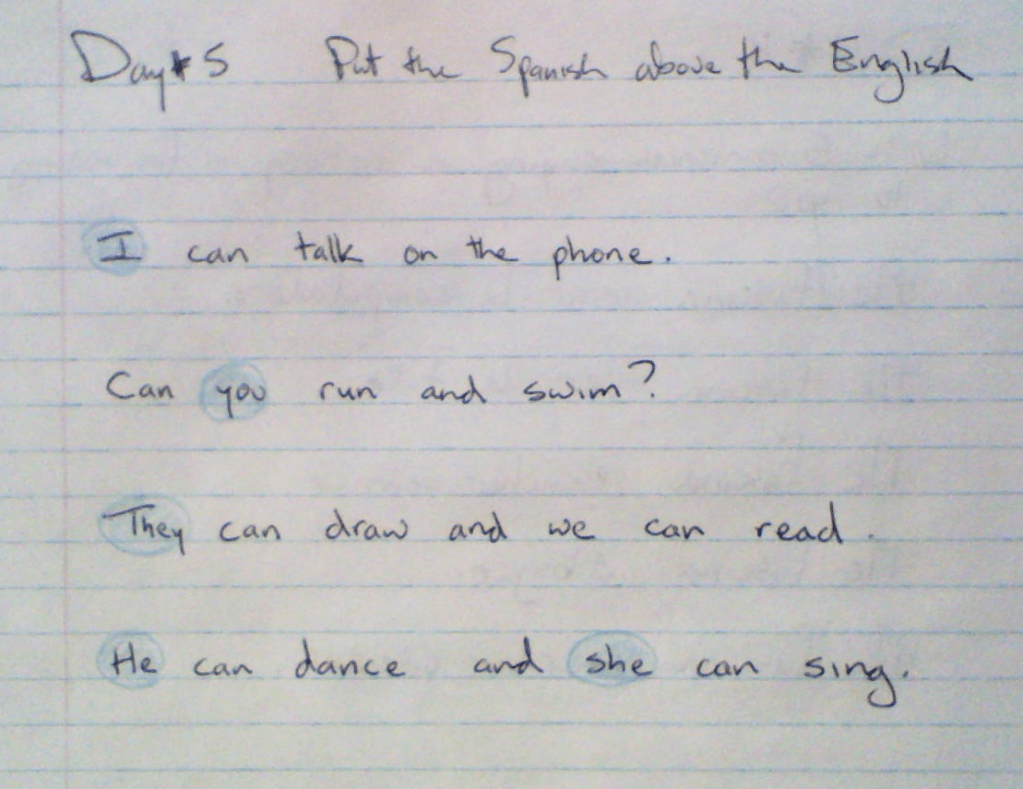 Day # 5 Put the Spanish above the English
I can talk on the phone.
Can you run and swim?
They can draw and we can read.
He can dance and she can sing.